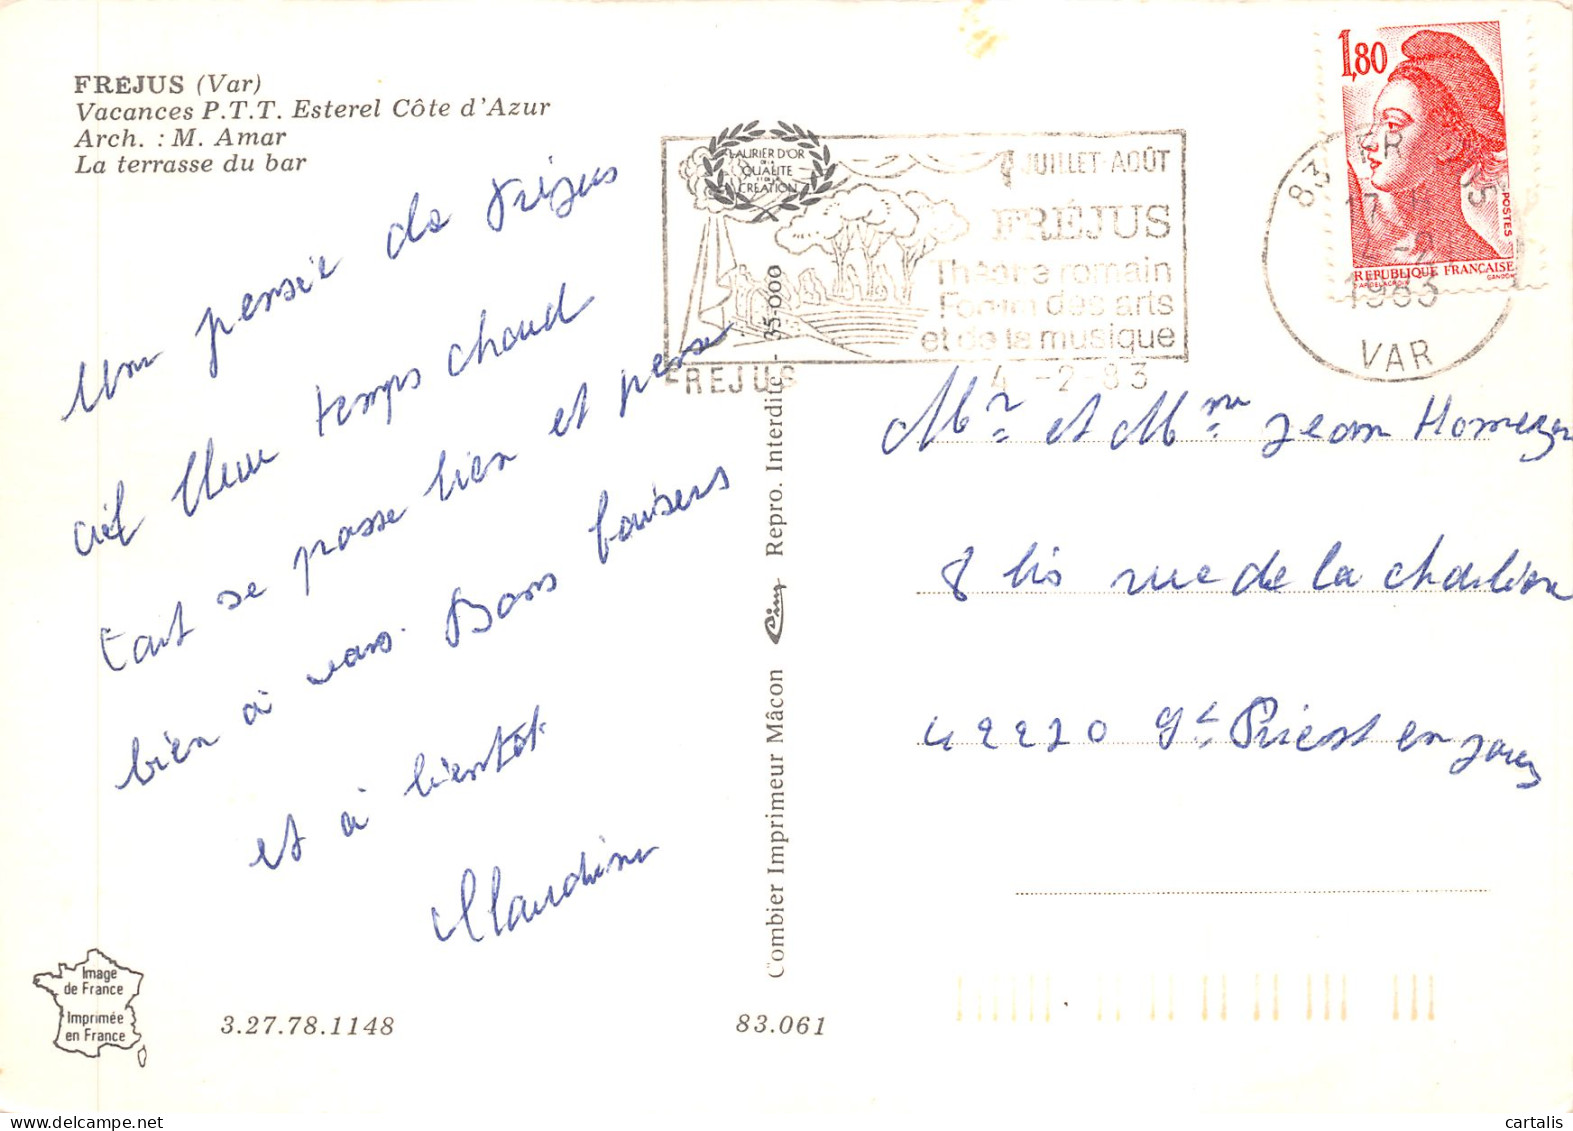 FREJUS (Var)
Vacances P.T.T. Esterel Côte d'Azur
Arch. : M. Amar
La terrasse du bar
Une pensée de Fréjus
ciel bleu temps chaud
tout se passe bien et pense
bien à vous. Bons baisers
et à bientôt
Claudine
LAURIER D'OR
DE LA
QUALITÉ
ET DE LA
CRÉATION
JUILLET-AOÛT
FRÉJUS
Théâtre romain
Forum des arts
et de la musique
FREJUS
4 -2-83
83
17
4-2
1983
VAR
1,80
POSTES
REPUBLIQUE FRANÇAISE
D'AP. DELACROIX
GANDON
Mr et Mme Jean
8 bis rue de la
42220 St Priest en
Combier Imprimeur Mâcon Cim Repro. Interdite - 35-000
Image
de France
Imprimée
en France
3.27.78.1148
83.061
cartalis